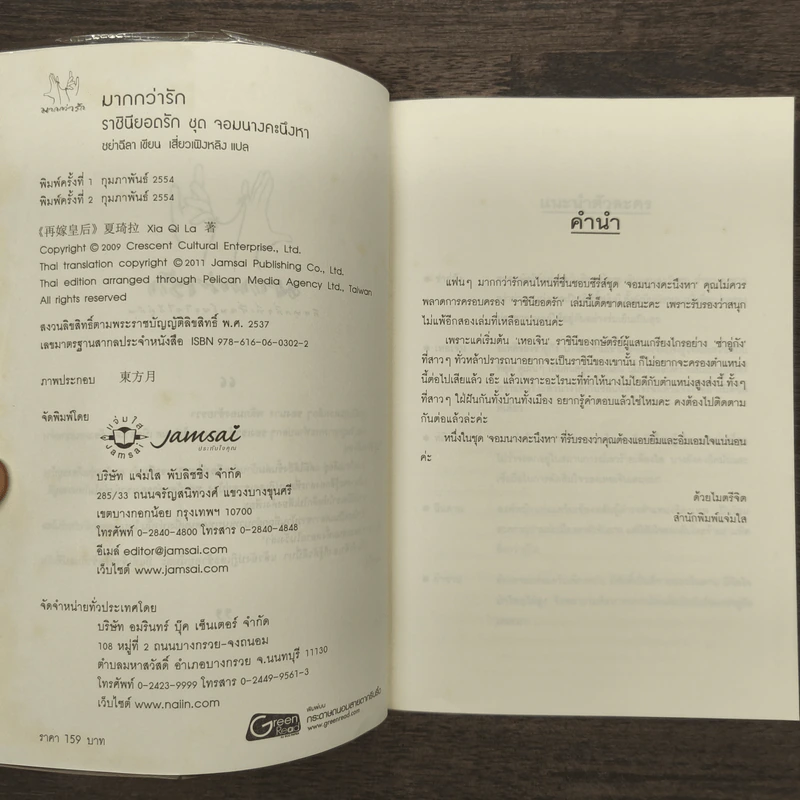 มากกว่ารัก
มากกว่ารัก
ราชินียอดรัก ชุด จอมนางคะนึงหา
ชย่าฉีลา เขียน เสี่ยวเฟิงหลิง แปล
พิมพ์ครั้งที่ 1 กุมภาพันธ์ 2554
พิมพ์ครั้งที่ 2 กุมภาพันธ์ 2554
《再嫁皇后》夏琦拉 Xia Qi La 著
Copyright © 2009 Crescent Cultural Enterprise., Ltd.
Thai translation copyright © 2011 Jamsai Publishing Co., Ltd.
Thai edition arranged through Pelican Media Agency Ltd., Taiwan
All rights reserved
สงวนลิขสิทธิ์ตามพระราชบัญญัติลิขสิทธิ์ พ.ศ. 2537
เลขมาตรฐานสากลประจำหนังสือ ISBN 978-616-06-0302-2
ภาพประกอบ 東方月
จัดพิมพ์โดย
แจ่มใส
Jamsai
Jamsai
ประทับใจคุณ
บริษัท แจ่มใส พับลิชชิ่ง จำกัด
285/33 ถนนจรัญสนิทวงศ์ แขวงบางขุนศรี
เขตบางกอกน้อย กรุงเทพฯ 10700
โทรศัพท์ 0-2840-4800 โทรสาร 0-2840-4848
อีเมล์ editor@jamsai.com
เว็บไซต์ www.jamsai.com
จัดจำหน่ายทั่วประเทศโดย
บริษัท อมรินทร์ บุ๊ค เซ็นเตอร์ จำกัด
108 หมู่ที่ 2 ถนนบางกรวย-จงถนอม
ตำบลมหาสวัสดิ์ อำเภอบางกรวย จ.นนทบุรี 11130
โทรศัพท์ 0-2423-9999 โทรสาร 0-2449-9561-3
เว็บไซต์ www.naiin.com
Green Read
พิมพ์บน
กระดาษถนอมสายตากรีนรี้ด
www.greenread.com
ราคา 159 บาท
คำนำ
แฟนๆ มากกว่ารักคนไหนที่ชื่นชอบซีรี่ส์ชุด 'จอมนางคะนึงหา' คุณไม่ควร
พลาดการครอบครอง 'ราชินียอดรัก' เล่มนี้เด็ดขาดเลยนะคะ เพราะรับรองว่าสนุก
ไม่แพ้อีกสองเล่มที่เหลือแน่นอนค่ะ
เพราะแค่เริ่มต้น 'เหอเจิน' ราชินีของกษัตริย์ผู้แสนเกรียงไกรอย่าง 'ซ่าอู่กัง'
ที่สาวๆ ทั่วหล้าปรารถนาอยากจะเป็นราชินีของเขานั้น ก็ไม่อยากจะครองตำแหน่ง
นี้ต่อไปเสียแล้ว เอ๊ะ แล้วเพราะอะไรนะที่ทำให้นางไม่ไยดีกับตำแหน่งสูงส่งนี้ ทั้งๆ
ที่สาวๆ ใฝ่ฝันกันทั้งบ้านทั้งเมือง อยากรู้คำตอบแล้วใช่ไหมคะ คงต้องไปติดตาม
กันต่อแล้วล่ะค่ะ
หนึ่งในชุด 'จอมนางคะนึงหา' ที่รับรองว่าคุณต้องแอบยิ้มและอิ่มเอมใจแน่นอน
ค่ะ
ด้วยไมตรีจิต
สำนักพิมพ์แจ่มใส